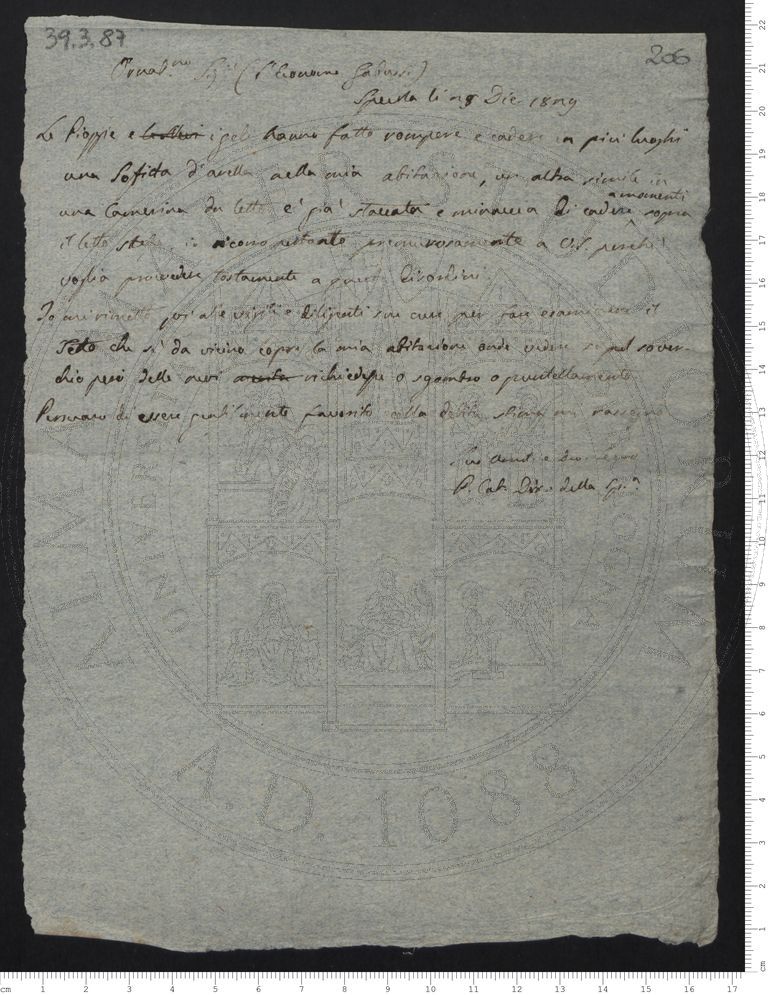 39.3.87
206
Ornat.mo Sig.r (
Specola li 28 Dic 1829
Le Pioggie e le Nevi i geli hanno fatto rompere e cadere in più luoghi
una Sofitta d'arella nella mia abitazione, un altra simile in
una Camerina da letto è già staccata e minaccia di cadere a momenti sopra
il letto stesso, io ricorro pertanto premurosamente a V.S. perchè
voglia provvedere tostamente a questi disordini
Io mi rimetto poi alle vigili e diligenti sue cure per fare esaminare il
Tetto che sì da vicino copre la mia abitazione onde vedere se pel sover-
chio peso delle nevi richiedesse o sgombro o puntellamento
Persuaso di essere gentilmente favorito colla debita stima mi rassegno
Suo
P. Cat. Dir. della
ALMA MATER STUDIORUM
A.D. 1088